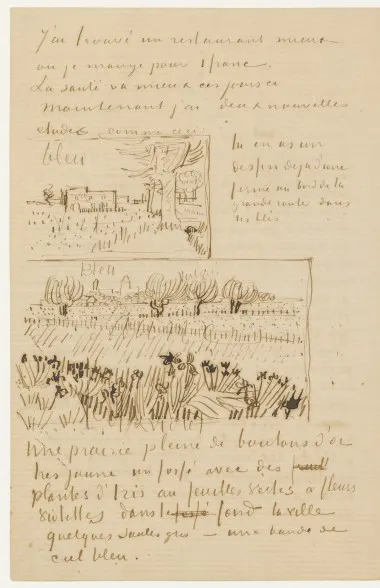 J'ai trouvé un restaurant mieux
où je mange pour 1 franc.
La santé va mieux ces jours ci
Maintenant j'ai deux nouvelles
études comme ceci
tu en as un
dessin déjà d'une
ferme au bord de la
grande route dans
les blés
bleu
Bleu
violet
Une prairie pleine de boutons d'or
très jaune un fossé avec des
plantes d'Iris aux feuilles vertes à fleurs
violettes dans le fond la ville
quelques saules gris – une bande de
ciel bleu.